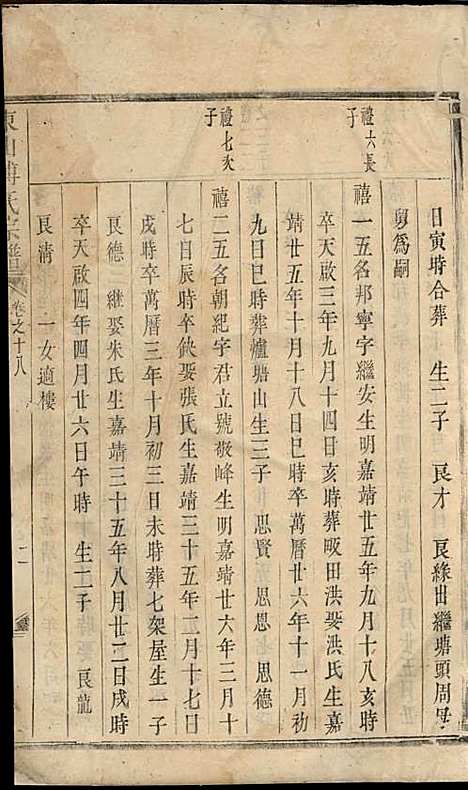 日寅時合葬　生二子　良才　良緣出繼塘頭周母
舅為嗣
禮六長子
禧一五名邦寧字繼安生明嘉靖廿五年九月十八亥時
卒天啟三年九月十四日亥時葬畈田洪娶洪氏生嘉
靖廿五年十月十八日巳時卒萬曆廿六年十一月初
九日巳時葬爐塘山生三子　思賢　思恩　思德
禮七次子
禧二五名朝紀字君立號敬峰生明嘉靖廿六年三月十
七日辰時卒缺娶張氏生嘉靖三十五年二月十七日
戌時卒萬曆三年十月初三日未時葬七架屋生一子
良德　繼娶朱氏生嘉靖三十五年八月廿二日戌時
卒天啟四年四月廿六日午時　生二子　良龍
良清　一女適樓
氏宗譜　卷之十八　二一